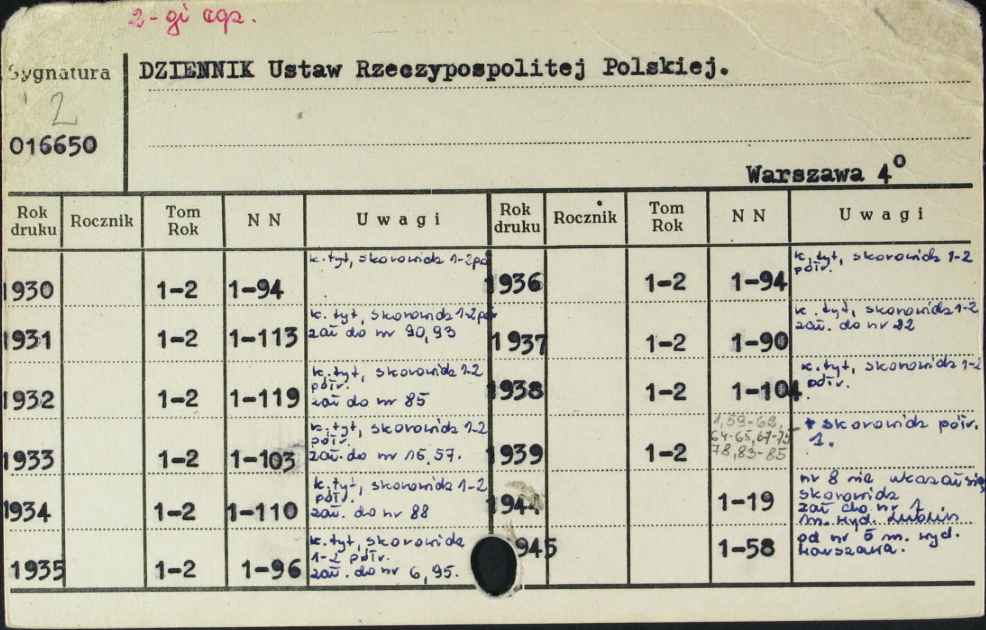 2-gi egz.
Sygnatura
2
016650
DZIENNIK Ustaw Rzeczypospolitej Polskiej.
Warszawa 4°
Rok druku Rocznik Tom Rok N N Uwagi Rok druku Rocznik Tom Rok N N Uwagi
1930 1-2 1-94 k. tyt, skorowidz 1-2 pó
1931 1-2 1-113 k. tyt, skorowidz 1-2 pół
zał do nr 90,93
1932 1-2 1-119 k. tyt, skorowidz 1-2
półr.
zał do nr 85
1933 1-2 1-103 k. tyt, skorowidz 1-2
półr.
zał. do nr 16,57.
1934 1-2 1-110 k. tyt, skorowidz 1-2
półr.
zał. do nr 88
1935 1-2 1-96 k. tyt, skorowidz
1-2 półr.
zał. do nr 6,95.
1936 1-2 1-94 k. tyt, skorowidz 1-2
półr.
1937 1-2 1-90 k. tyt, skorowidz 1-2
zał. do nr 22
1938 1-2 1-104 k. tyt, skorowidz 1-2
półr.
1939 1-2 1,59-63,
64-65,67-75
78,83-85
+ skorowidz półr.
1.
1944 1-19 nr 8 nie ukazał się
skorowidz
zał do nr 1
m. wyd. Lublin
945 1-58 od nr 5 m. wyd.
Warszawa.